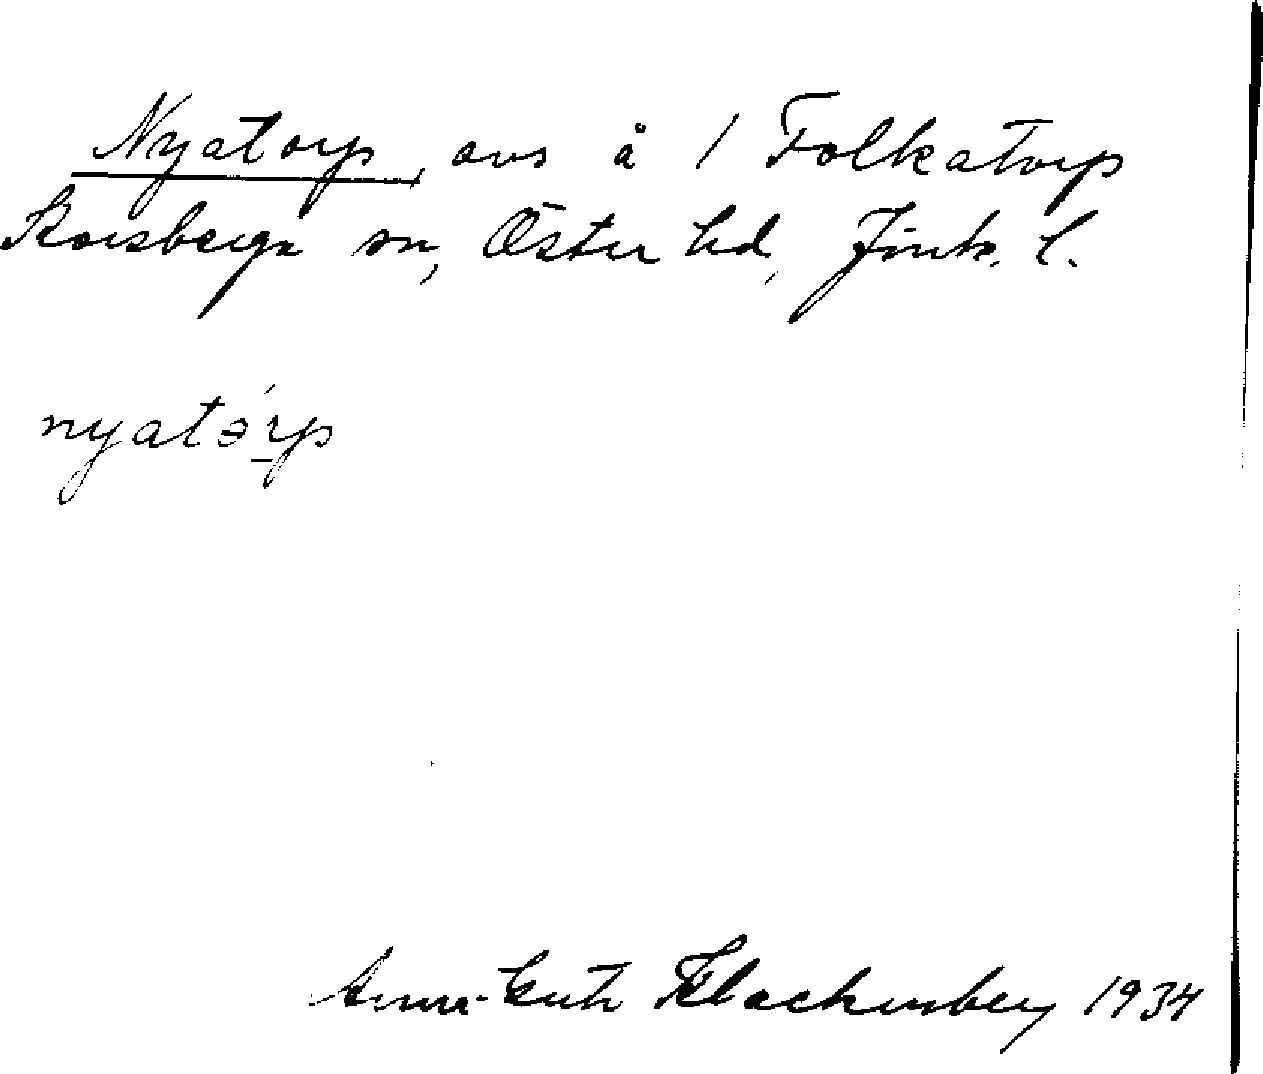 Nyatorp, avs å 1 Folkatorp
Korsberga sn, Östra hd, Jönk. l.
nyatɔ́rp
Anna-Greta Klackenberg 1934